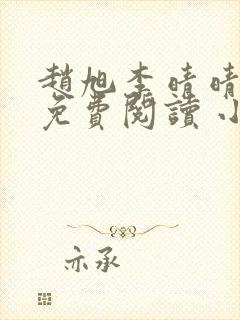 趙旭李晴晴
免費閱讀小
亦承